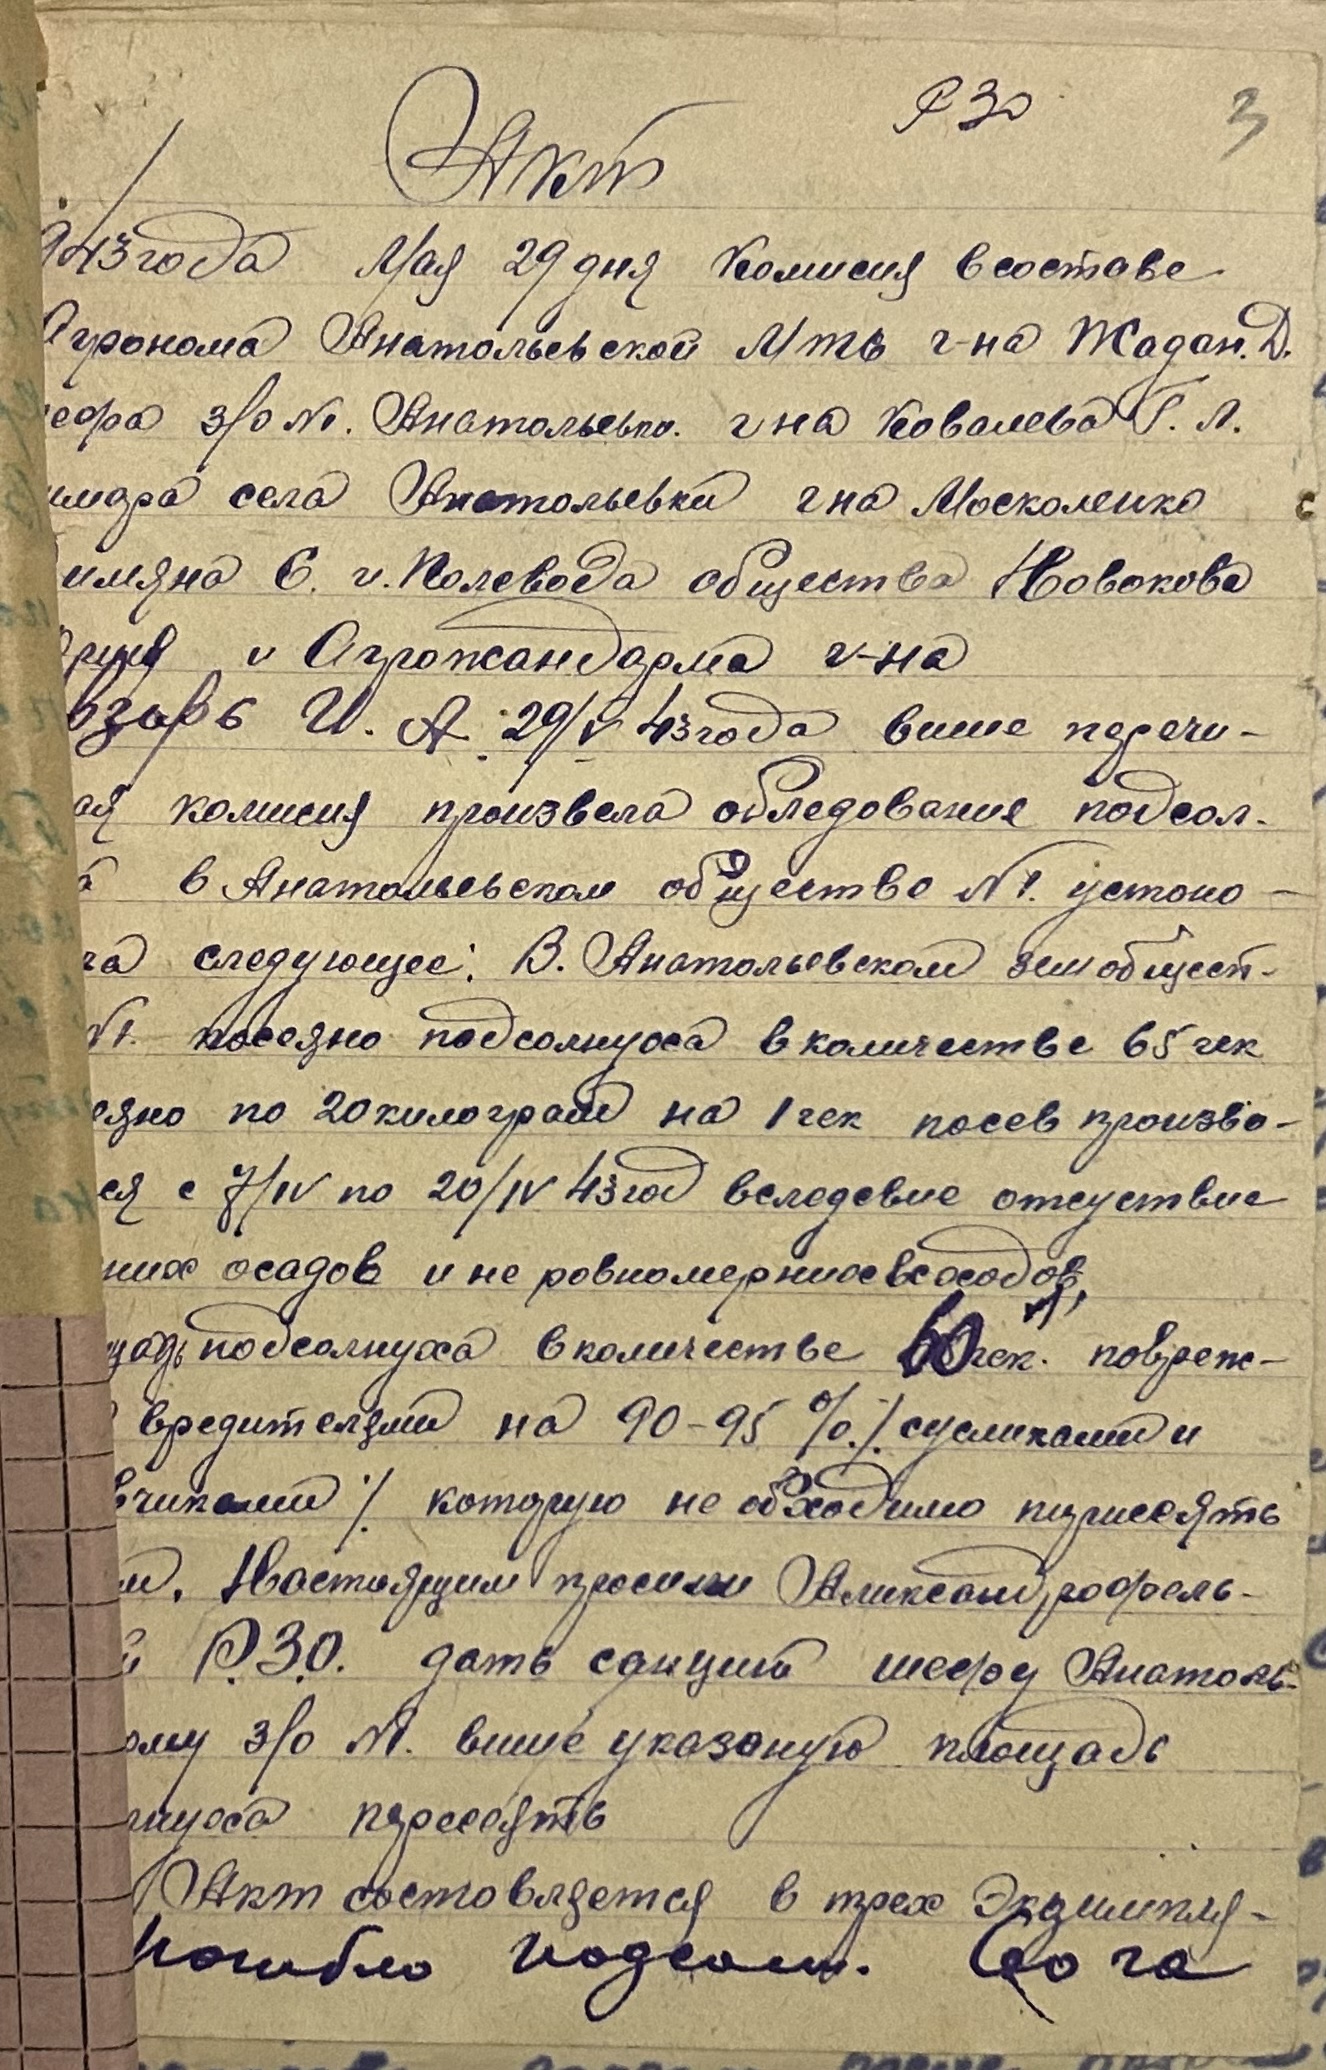 РЗО 3
Акт
943 года Мая 29 дня Комисия в составе
Агронома Анатольевской Мтв г-на Жадан. Д.
шефа з/о №1. Анатольевко. г на Ковалева Г. Л.
села Анатольевки г на Москоленко
Е. и. Полевода общества Новокова
и Агрожандарма г-на
И. А. 29/V 43 года више перечи-
ая комисия произвела обледование подсол-
а в Анатольевском обществе №1. устоно-
следующее: В. Анатольевском земобщест-
№1. посеяно подсолнуха в количестве 65 гек
еяно по 20 килограм на 1 гек посев произво-
ся с 7/IV по 20/IV 43 год вследевие отсуствие
них осадов и не ровномерних всходов,
щадь подсолнуха в количестве 60 гек. повреж-
вредителями на 90-95 %/. сусликами и
вчиками /. которую не обходимо пирисеять
м. Настоящим просим Аликсандрофель-
й Р.З.О. дать санций шефу Анатоль-
ому з/о №1. више указаную площадь
лнуха пересеять
Акт состовляется в трех Экзимпля-
Погибло подсолн. 60 га